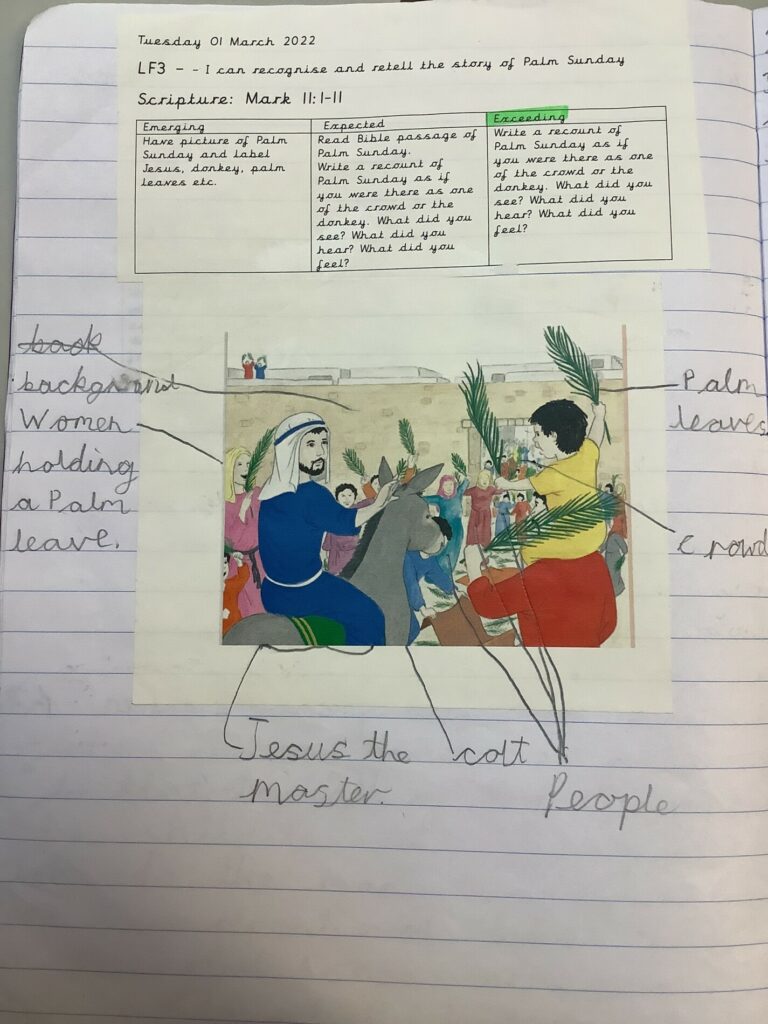 Tuesday 01 March 2022
LF3 - - I can recognise and retell the story of Palm Sunday
Scripture: Mark 11:1-11
Emerging
Have picture of Palm
Sunday and label
Jesus, donkey, palm
leaves etc.
Expected
Read Bible passage of
Palm Sunday.
Write a recount of
Palm Sunday as if
you were there as one
of the crowd or the
donkey. What did you
see? What did you
hear? What did you
feel?
Exceeding
Write a recount of
Palm Sunday as if
you were there as one
of the crowd or the
donkey. What did you
see? What did you
hear? What did you
feel?
back
background
Women
holding
a Palm
leave.
Palm
leaves
crowd
Jesus the
master.
colt
People